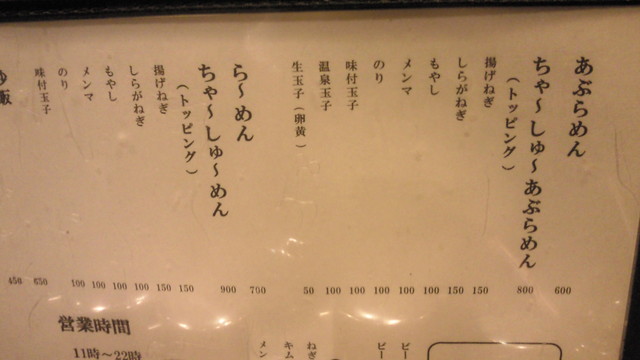 あぶらめん 600
ちゃ〜しゅ〜あぶらめん 800
（トッピング）
揚げねぎ 150
しらがねぎ 150
もやし 100
メンマ 100
のり 100
味付玉子 100
温泉玉子 100
生玉子（卵黄） 50
ら〜めん 700
ちゃ〜しゅ〜めん 900
（トッピング）
揚げねぎ 150
しらがねぎ 150
もやし 100
メンマ 100
のり 100
味付玉子 100
650
450
ビー
ビー
ねぎ
キム
メン
営業時間
11時〜22時